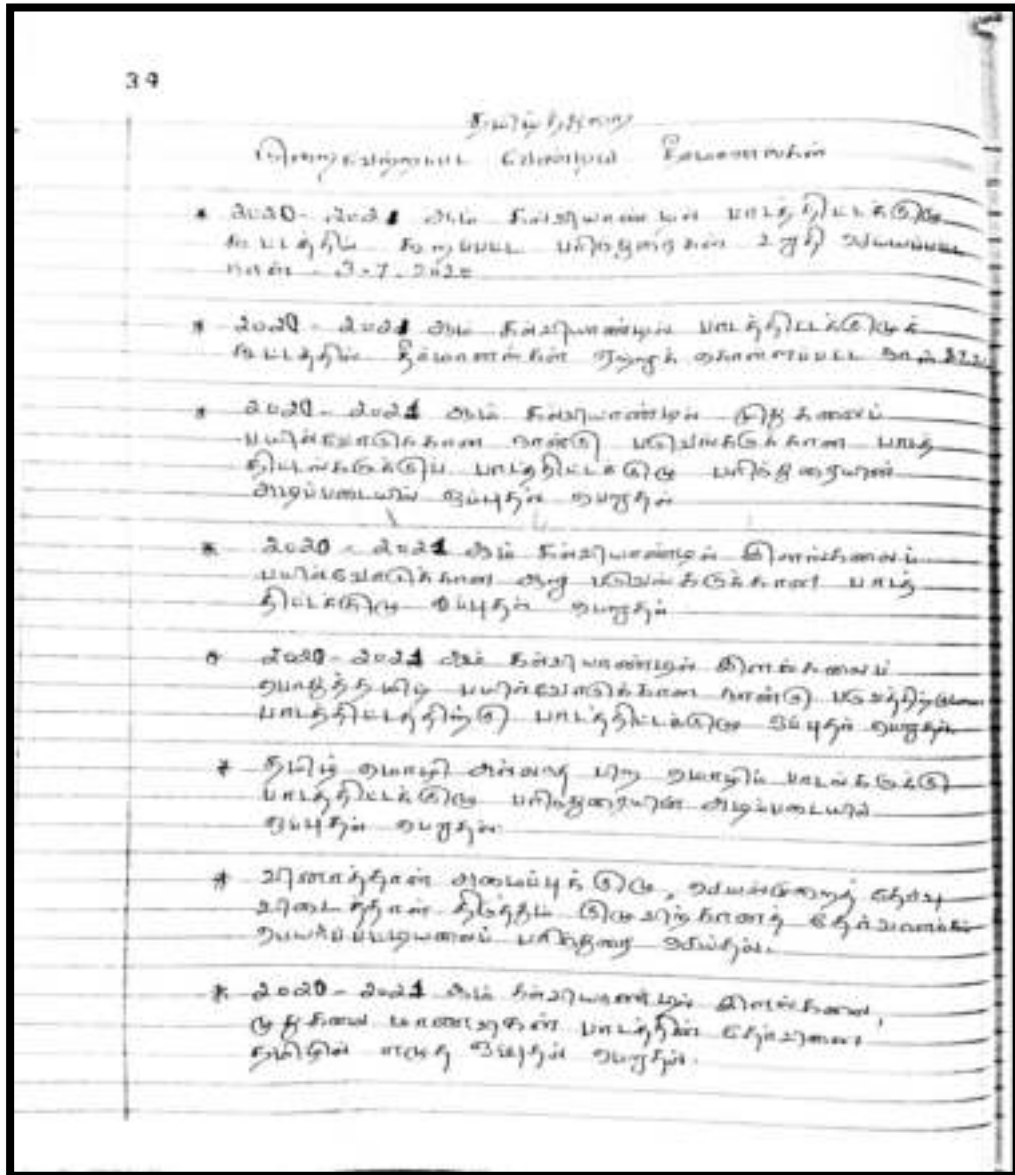 39
தமிழ்த்துறை
நிறைவேற்றப்பட வேண்டிய தீர்மானங்கள்
* 2020-2021 ஆம் கல்வியாண்டின் பாடத்திட்டக்குழு
கூட்டத்தில் கூறப்பட்ட பரிந்துரைகள் உறுதி செய்யப்பட்ட
நாள் - 3-7-2020
* 2020 - 2021 ஆம் கல்வியாண்டில் பாடத்திட்டக்குழுக்
கூட்டத்தில் தீர்மானங்கள் ஏற்றுக் கொள்ளப்பட்ட நாள்
* 2020 - 2021 ஆம் கல்வியாண்டில் முதுகலைப்
பயில்வோடுக்கான நான்கு பருவங்களுக்கான பாடத்
திட்டங்களுக்குப் பாடத்திட்டக்குழு பரிந்துரையின்
அடிப்படையில் ஒப்புதல் பெறுதல்
* 2020 - 2021 ஆம் கல்வியாண்டில் இளங்கலைப்
பயில்வோடுக்கான ஆறு பருவங்களுக்கான பாடத்
திட்டக்குழு ஒப்புதல் பெறுதல்
* 2020 - 2021 ஆம் கல்வியாண்டில் இளங்கலைப்
பொதுத்தமிழ் பயில்வோடுக்கான நான்கு பருவத்திற்குமான
பாடத்திட்டத்திற்கு பாடத்திட்டக்குழு ஒப்புதல் பெறுதல்
* தமிழ் மொழி அல்லாத பிற மொழிப் பாடங்களுக்கு
பாடத்திட்டக்குழு பரிந்துரையின் அடிப்படையில்
ஒப்புதல் பெறுதல்
* வினாத்தாள் அமைப்புக் குழு, செயல்முறைத் தேர்வு
விடைத்தாள் திருத்தும் குழுவிற்கானத் தேர்வாளர்
பெயர்ப்பட்டியலைப் பரிந்துரை செய்தல்.
* 2020 - 2021 ஆம் கல்வியாண்டில் இளங்கலை,
முதுகலை மாணவர்கள் பாடத்தின் தேர்வினை
தமிழில் எழுத ஒப்புதல் பெறுதல்.